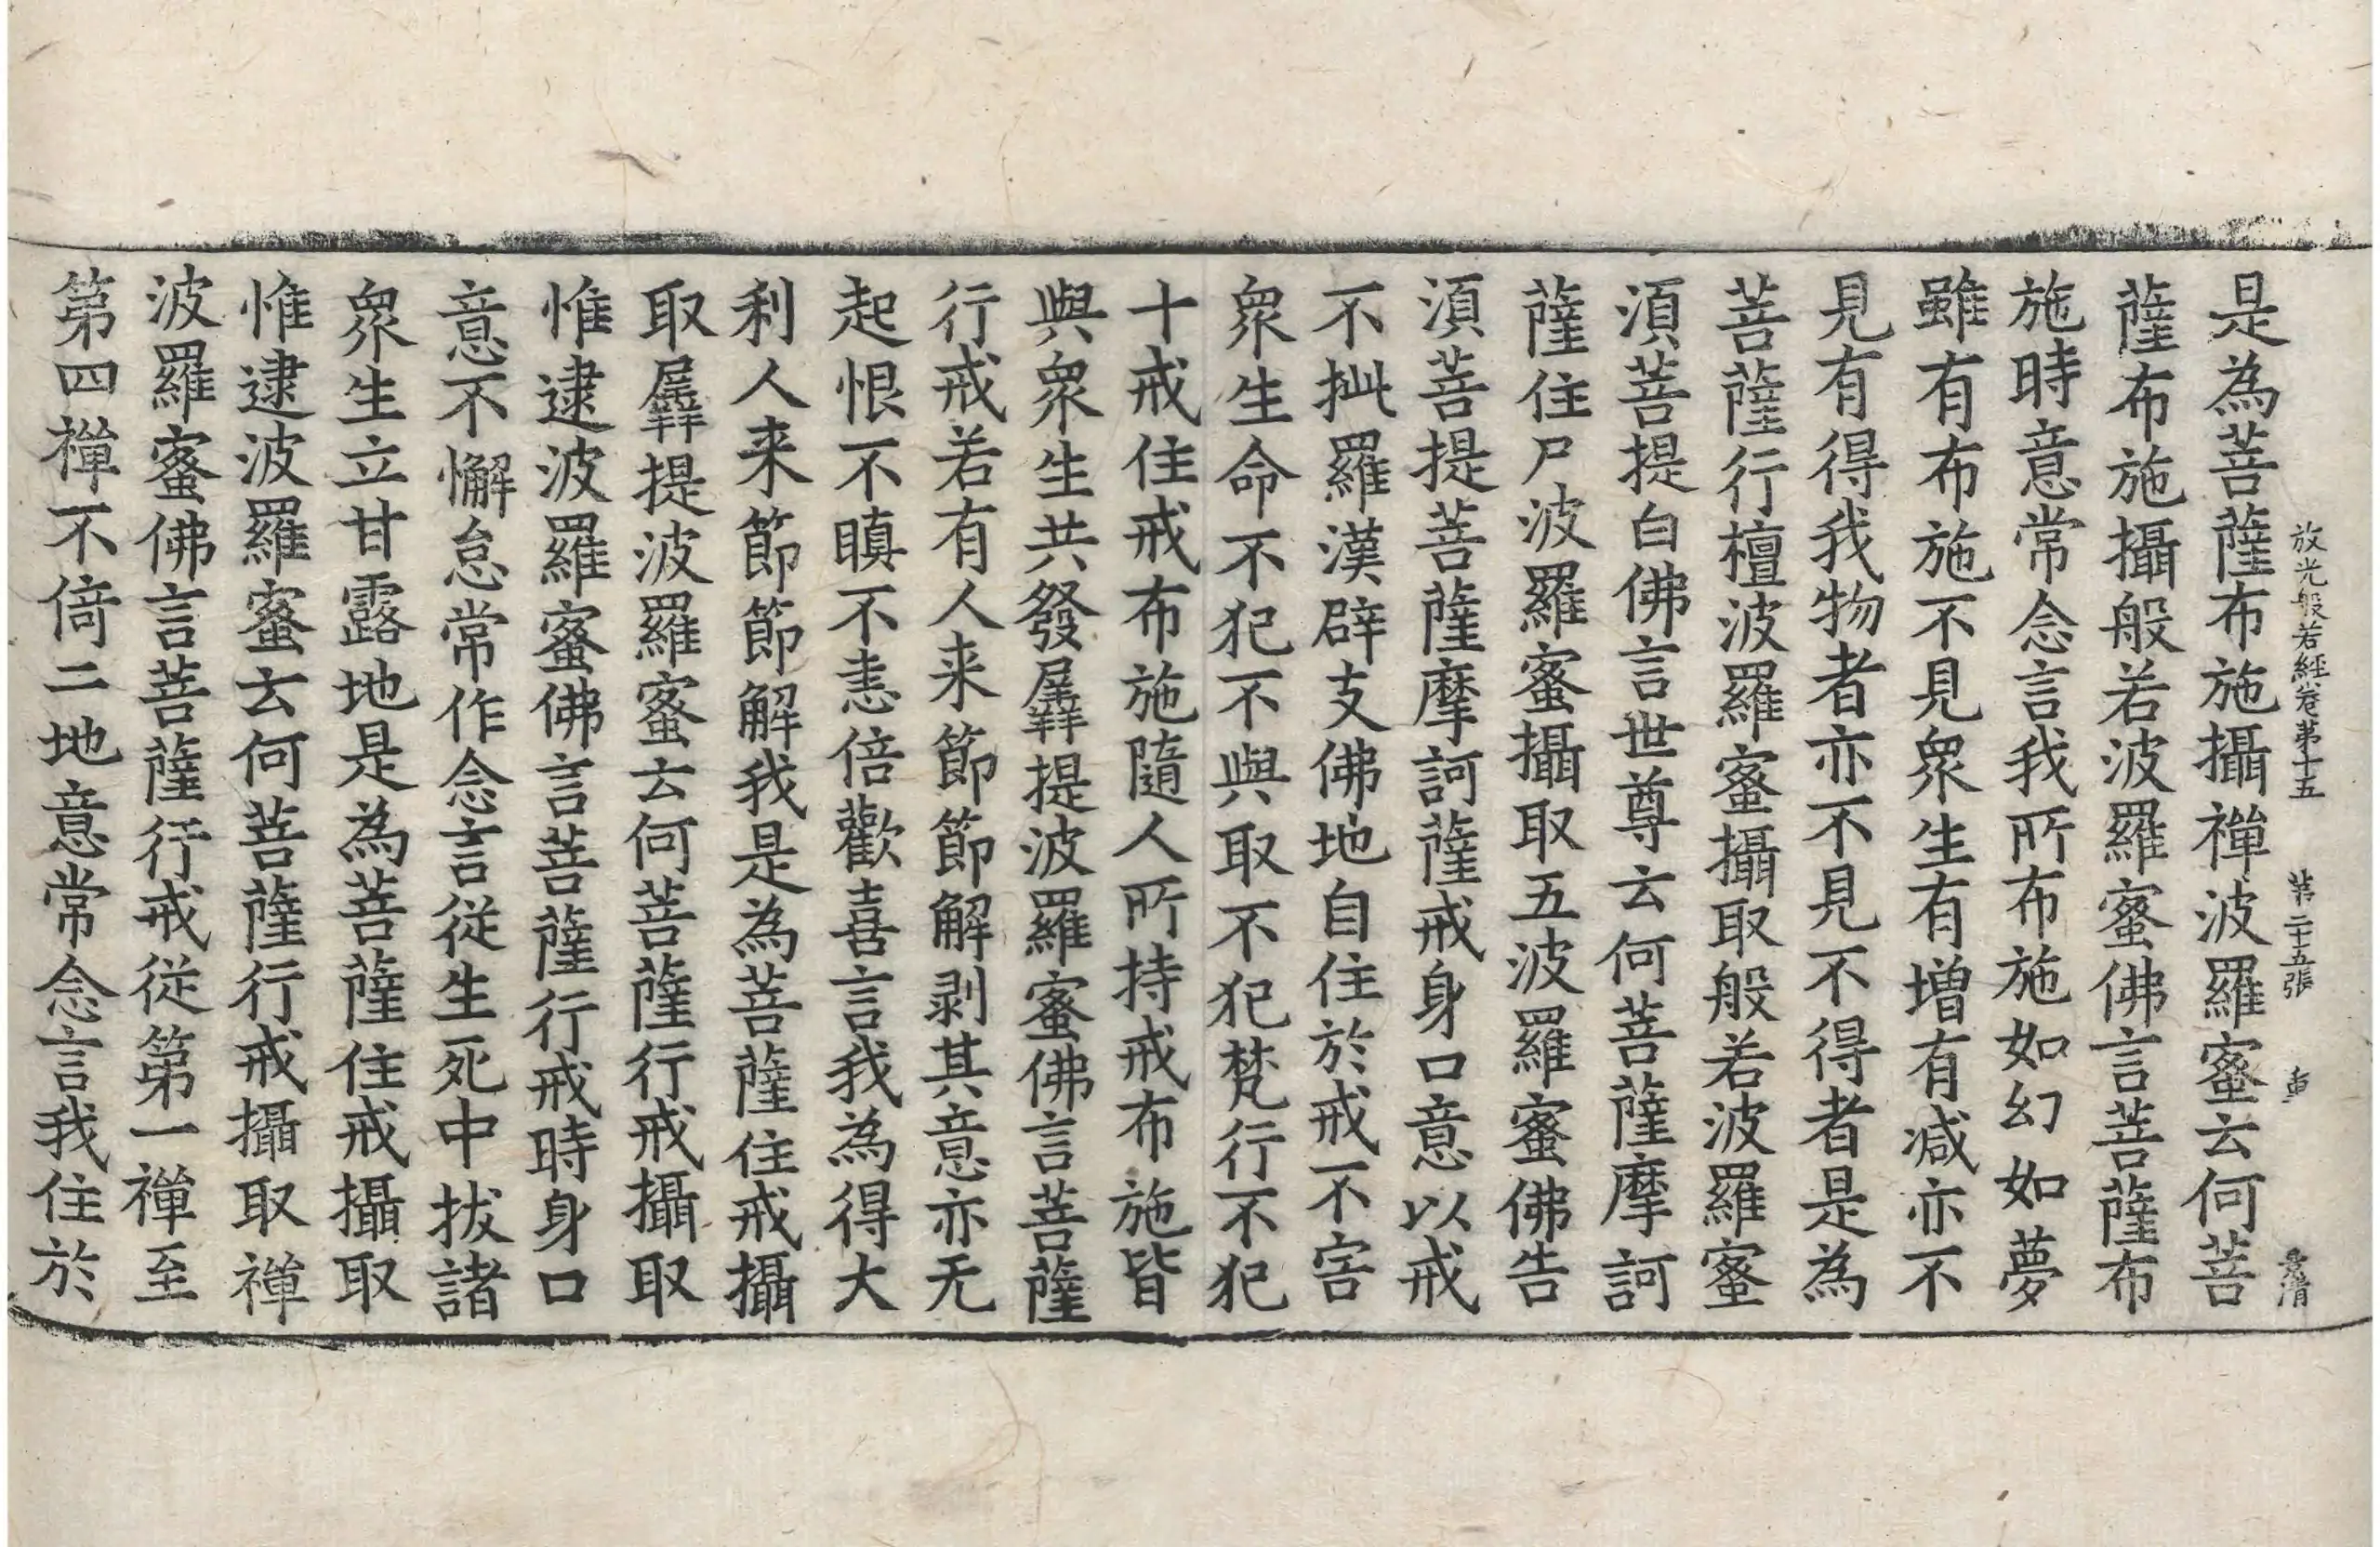 放光般若經卷第十五 第二十五張
是為菩薩布施攝禪波羅蜜云何菩
薩布施攝般若波羅蜜佛言菩薩布
施時意常念言我所布施如幻如夢
雖有布施不見衆生有增有减亦不
見有得我物者亦不見不得者是為
菩薩行檀波羅蜜攝取般若波羅蜜
湏菩提白佛言世尊云何菩薩摩訶
薩住尸波羅蜜攝取五波羅蜜佛告
湏菩提菩薩摩訶薩戒身口意以戒
不㧗羅漢辟支佛地自住於戒不害
衆生命不犯不與取不犯梵行不犯
十戒住戒布施隨人所持戒布施皆
與衆生共發羼提波羅蜜佛言菩薩
行戒若有人来節節解剥其意亦无
起恨不瞋不恚倍歡喜言我為得大
利人来節節解我是為菩薩住戒攝
取羼提波羅蜜云何菩薩行戒攝取
惟逮波羅蜜佛言菩薩行戒時身口
意不懈怠常作念言従生死中拔諸
衆生立甘露地是為菩薩住戒攝取
惟逮波羅蜜云何菩薩行戒攝取禪
波羅蜜佛言菩薩行戒従第一禪至
第四禪不倚二地意常念言我住於